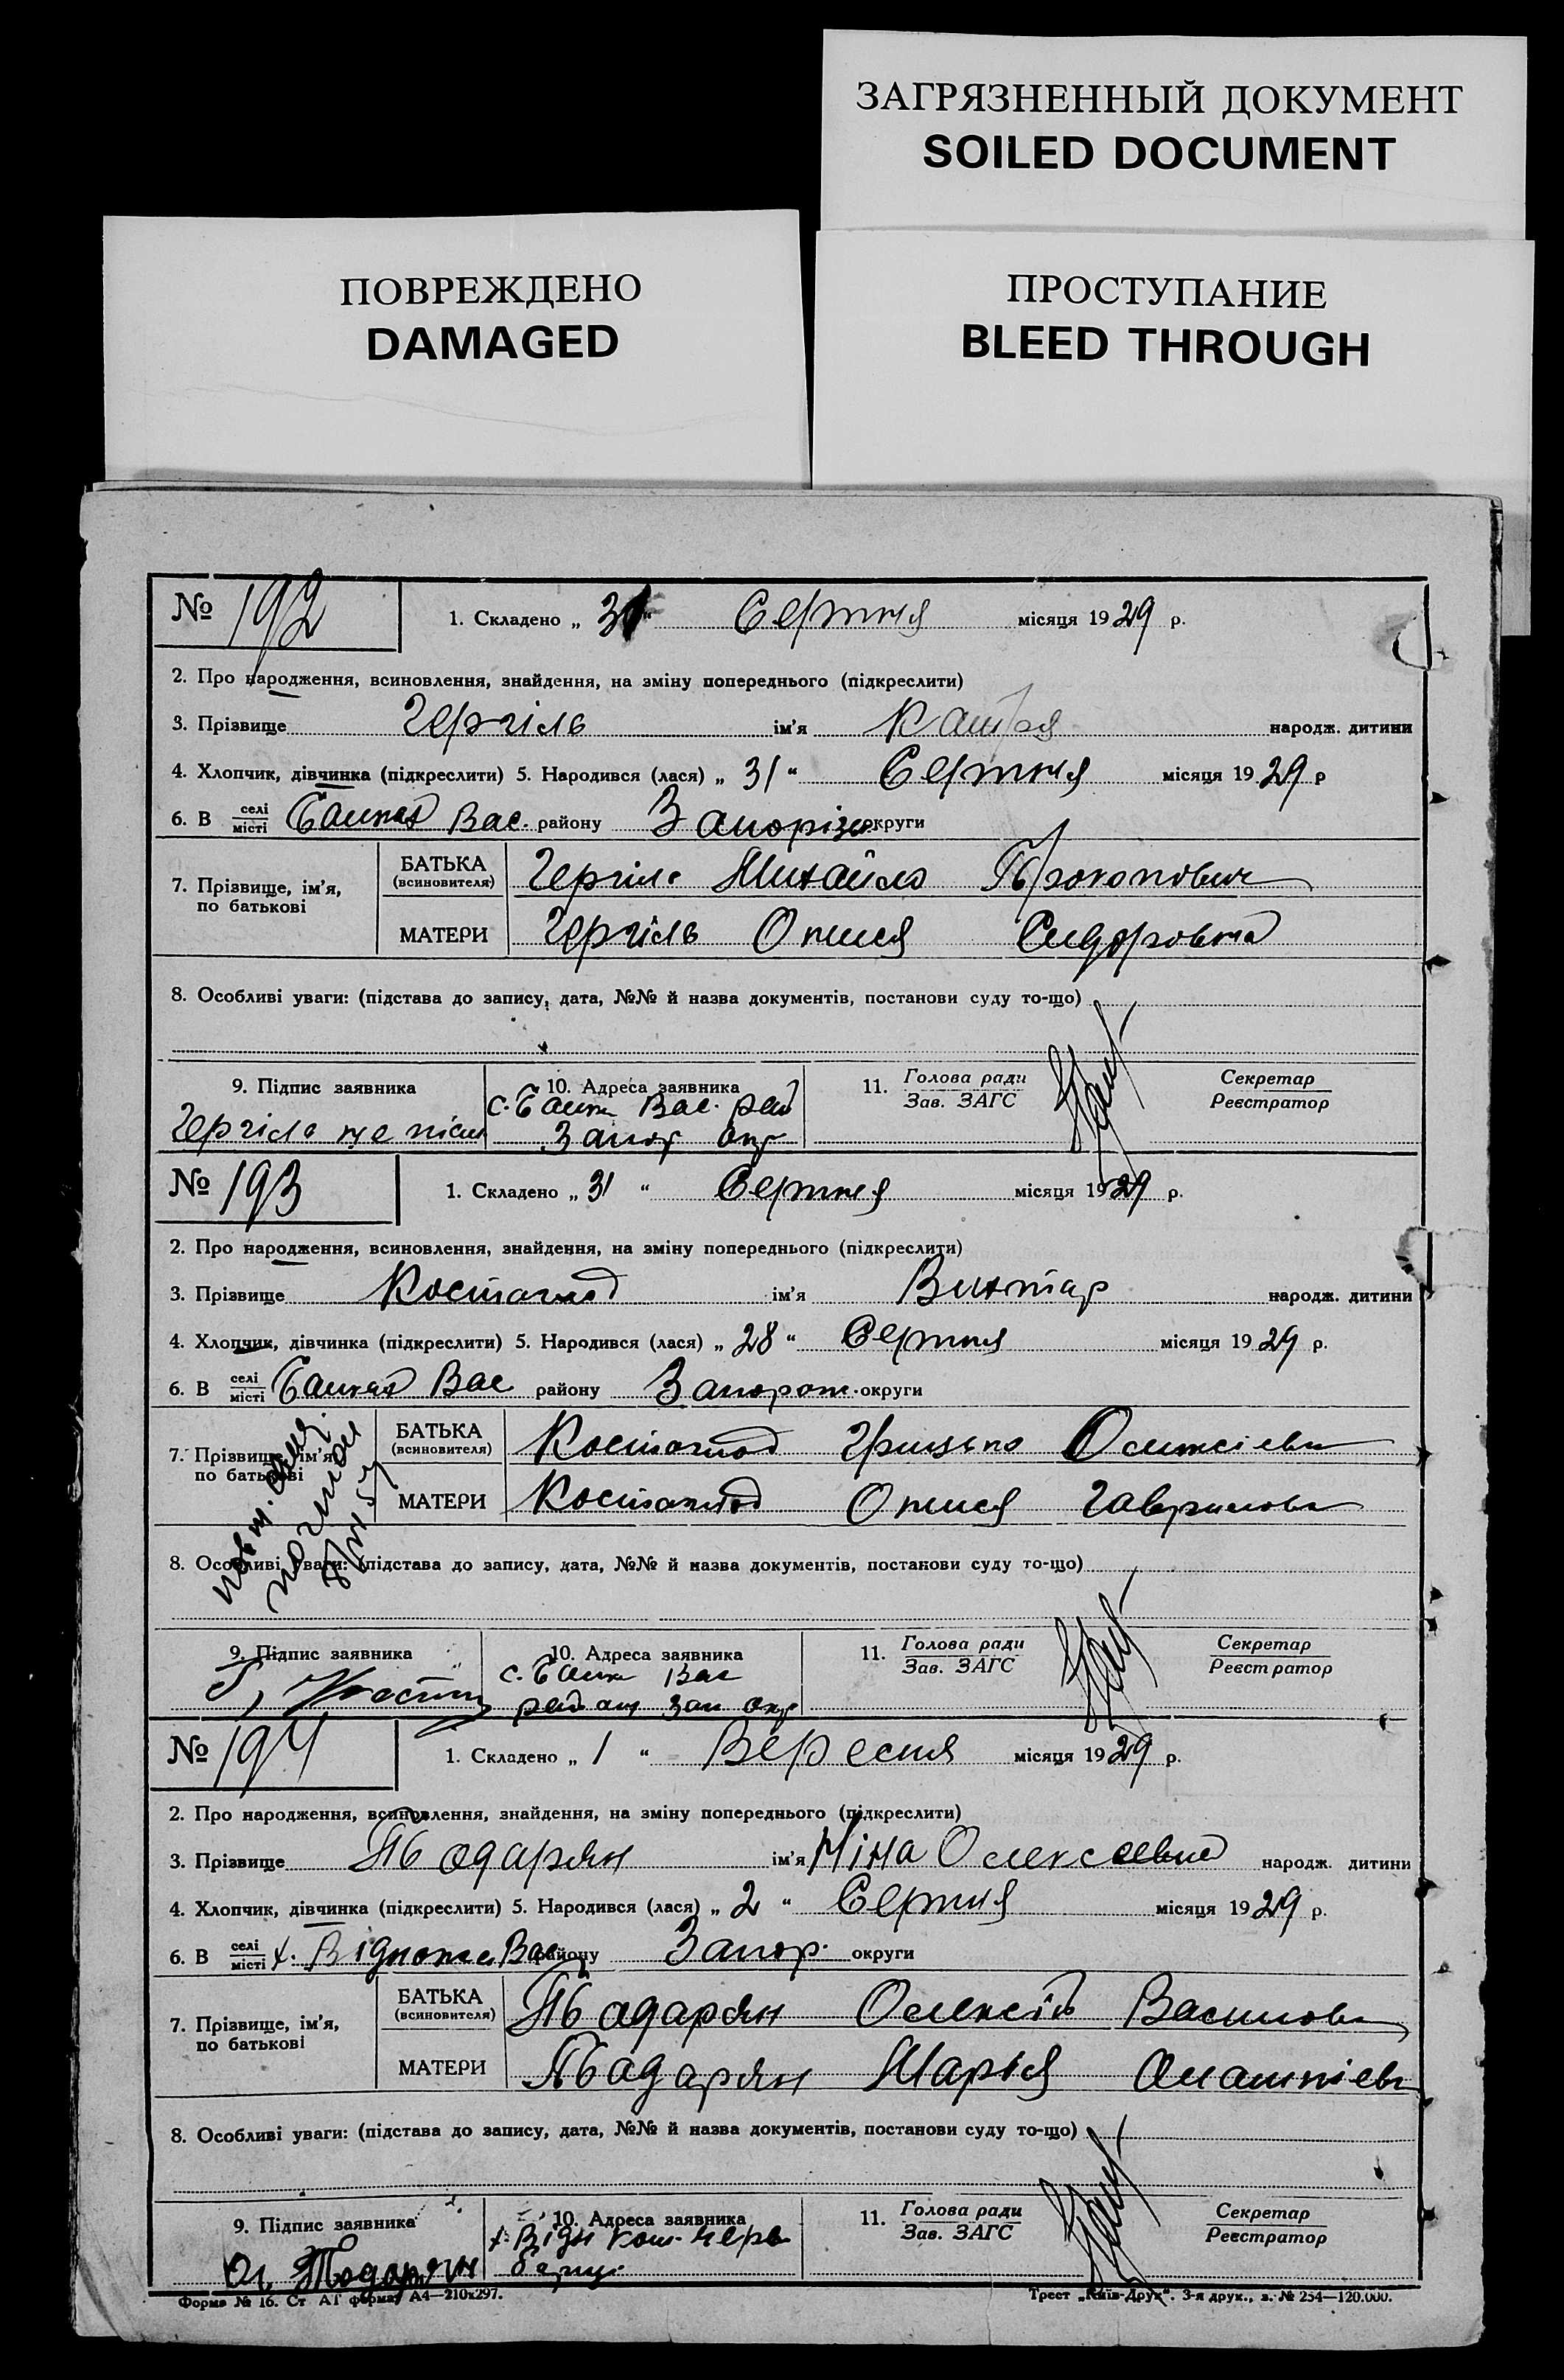 ЗАГРЯЗНЕННЫЙ ДОКУМЕНТ
SOILED DOCUMENT
ПОВРЕЖДЕНО
DAMAGED
ПРОСТУПАНИЕ
BLEED THROUGH
№ 192 1. Складено „ 31 “ Серпня місяця 1929 р.
2. Про народження, всиновлення, знайдення, на зміну попереднього (підкреслити)
3. Прізвище Чергіль ім'я Катря народж. дитини
4. Хлопчик, дівчинка (підкреслити) 5. Народився (лася) „ 31 “ Серпня місяця 19 29 р
6. В селі місті Вас. району Запоріз. округи
7. Прізвище, ім'я, по батькові БАТЬКА (всиновителя) Михайло Прокопович
МАТЕРИ Чергіль Опися Сидоровна
8. Особливі уваги: (підстава до запису, дата, №№ й назва документів, постанови суду то-що)
9. Підпис заявника 10. Адреса заявника 11. Голова ради Зав. ЗАГС Секретар Реєстратор
Вас. рай
Запор окр
№ 193 1. Складено „ 31 “ Серпня місяця 1929 р.
2. Про народження, всиновлення, знайдення, на зміну попереднього (підкреслити)
3. Прізвище Костоглод ім'я Виктар народж. дитини
4. Хлопчик, дівчинка (підкреслити) 5. Народився (лася) „ 28 “ Серпня місяця 19 29 р.
6. В селі місті Вас району округи
7. Прізвище, ім'я, по батькові БАТЬКА (всиновителя) Костоглод Грицько
МАТЕРИ Костоглод Опися Гаврилова
8. Особливі уваги: (підстава до запису, дата, №№ й назва документів, постанови суду то-що)
9. Підпис заявника 10. Адреса заявника 11. Голова ради Зав. ЗАГС Секретар Реєстратор
Вас
Зап окр
№ 194 1. Складено „ 1 “ Вересня місяця 19 29 р.
2. Про народження, всиновлення, знайдення, на зміну попереднього (підкреслити)
3. Прізвище Тодарян ім'я Ніна Олексеевна народж. дитини
4. Хлопчик, дівчинка (підкреслити) 5. Народився (лася) „ 2 “ Серпня місяця 19 29 р.
6. В селі місті х. Вас району Запор. округи
7. Прізвище, ім'я, по батькові БАТЬКА (всиновителя) Тодарян Олексій Василов
МАТЕРИ Тодарян Марія
8. Особливі уваги: (підстава до запису, дата, №№ й назва документів, постанови суду то-що)
9. Підпис заявника 10. Адреса заявника 11. Голова ради Зав. ЗАГС Секретар Реєстратор
Тодорян
Форма № 16. Ст АТ формат А4—210х297. Трест „Київ-Друк“. 3-я друк., з. № 254—120.000.